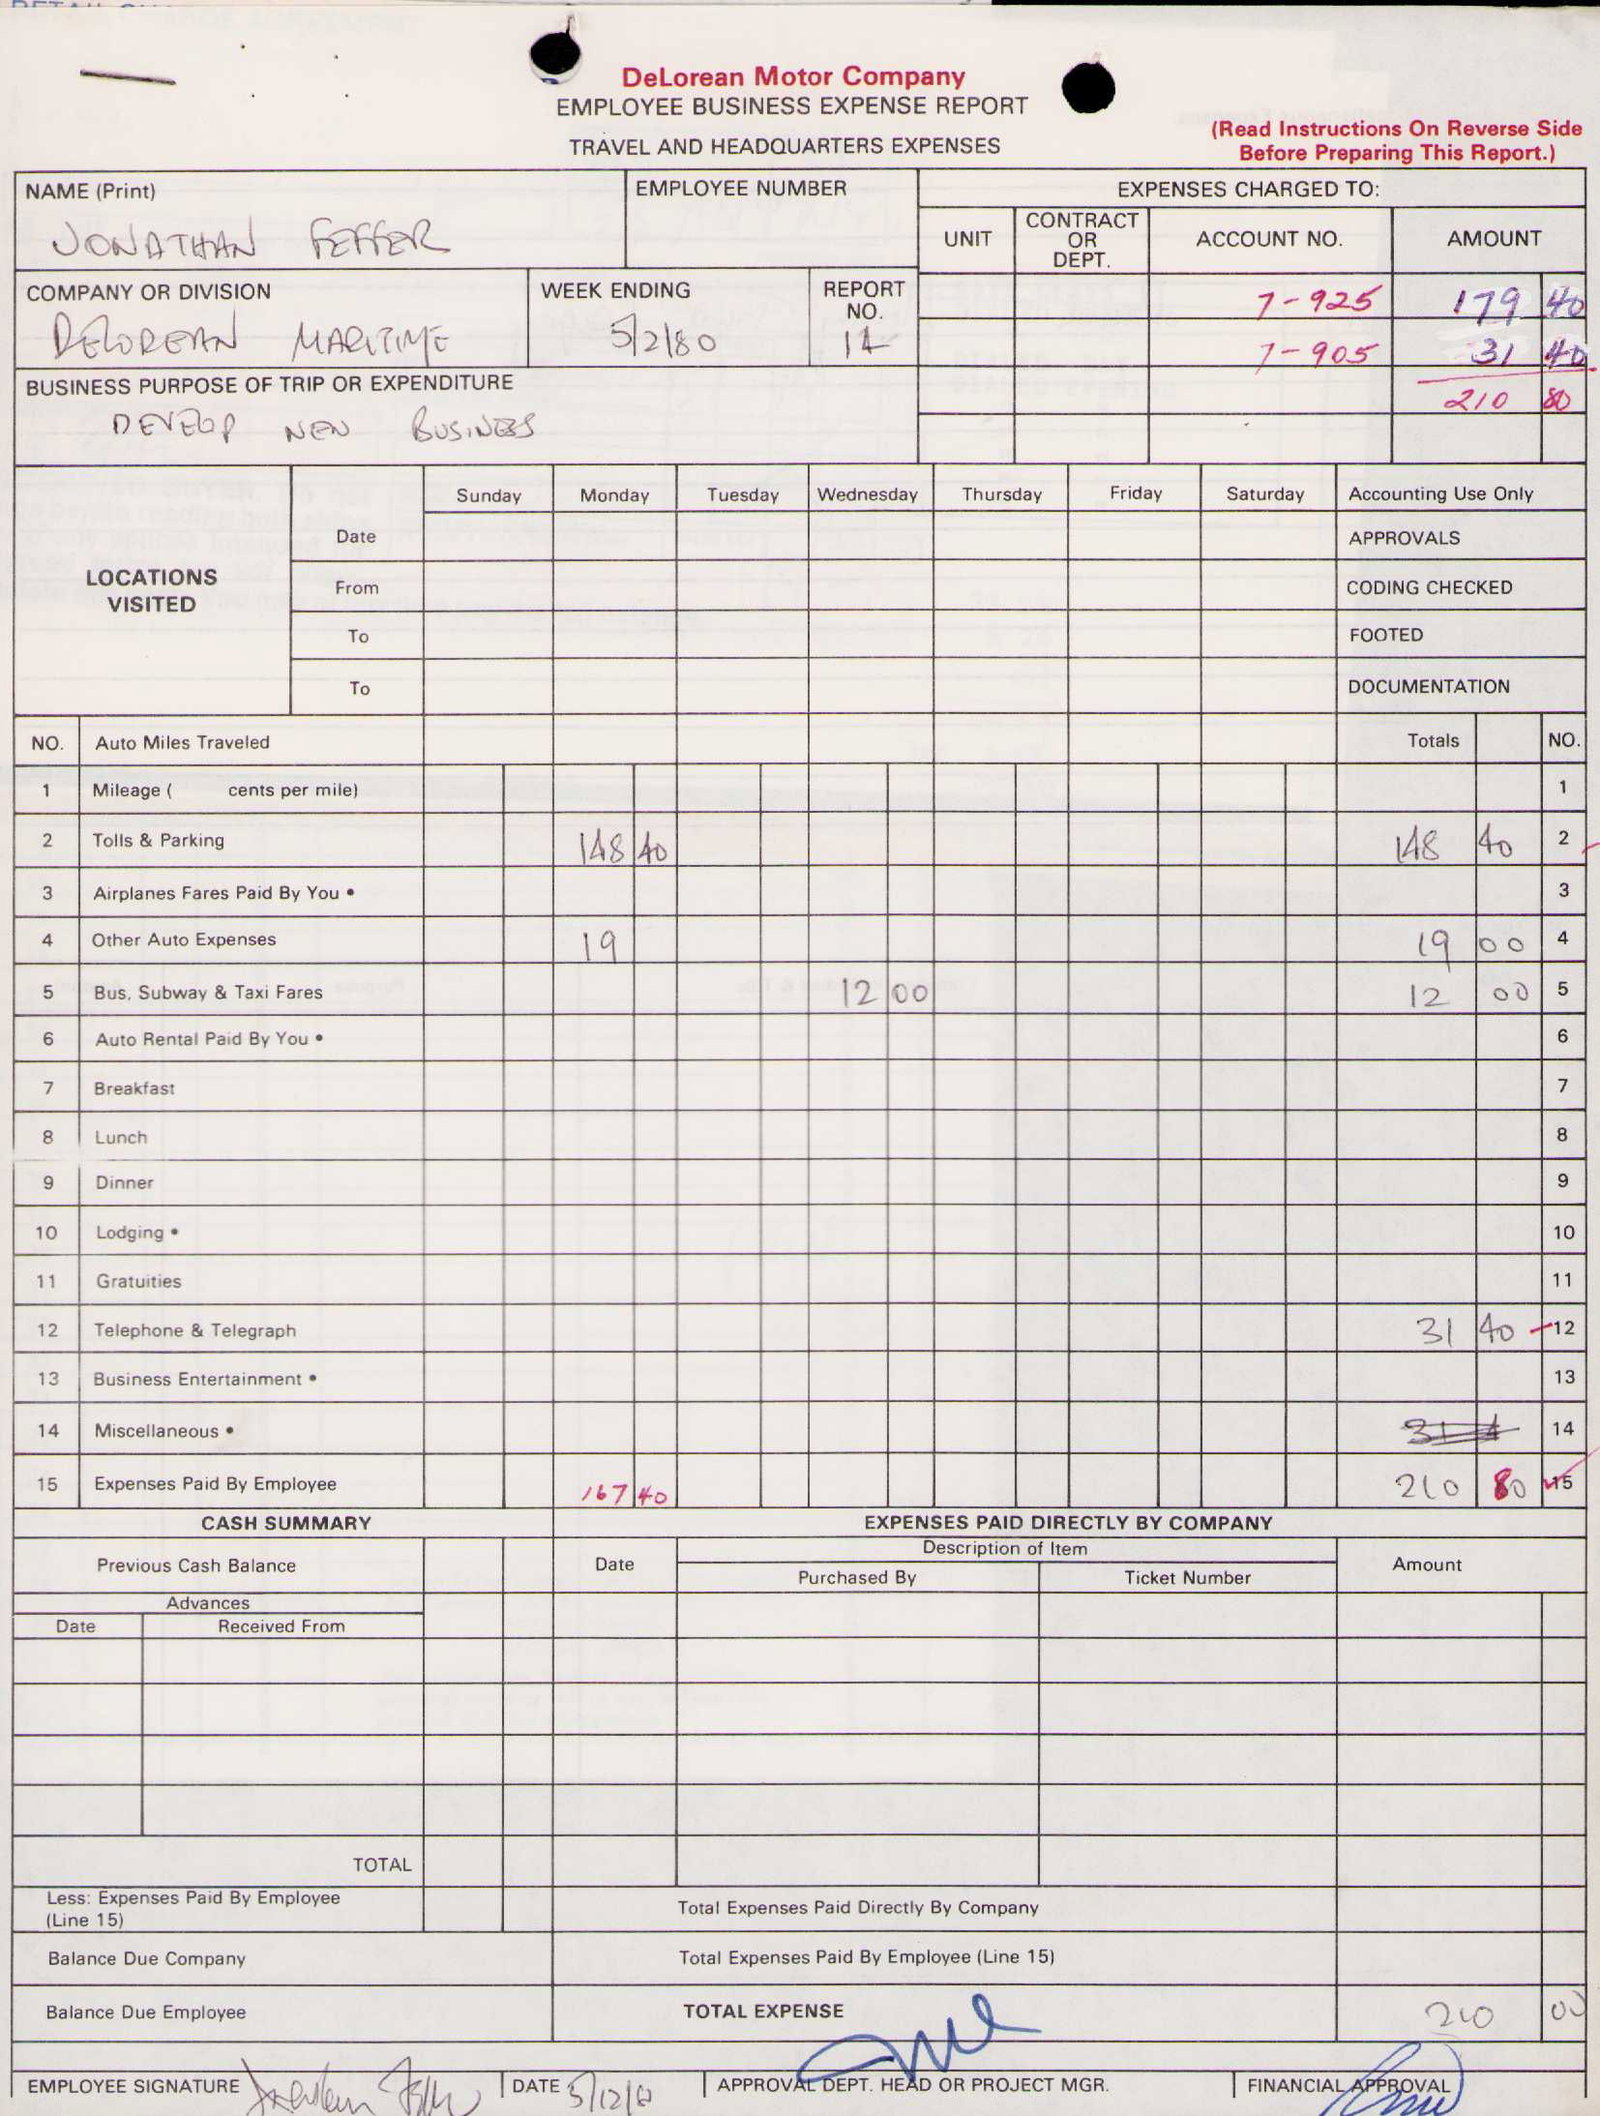 DeLorean Motor Company
EMPLOYEE BUSINESS EXPENSE REPORT
TRAVEL AND HEADQUARTERS EXPENSES
(Read Instructions On Reverse Side
Before Preparing This Report.)
NAME (Print)
JONATHAN FEFFER
EMPLOYEE NUMBER
EXPENSES CHARGED TO:
UNIT CONTRACT OR DEPT. ACCOUNT NO. AMOUNT
7-925 179 40
7-905 31 40
210 80
COMPANY OR DIVISION
DELOREAN MARITIME
WEEK ENDING
5/2/80
REPORT NO.
14
BUSINESS PURPOSE OF TRIP OR EXPENDITURE
DEVELOP NEW BUSINESS
Sunday Monday Tuesday Wednesday Thursday Friday Saturday Accounting Use Only
LOCATIONS VISITED
Date APPROVALS
From CODING CHECKED
To FOOTED
To DOCUMENTATION
NO. Auto Miles Traveled Totals NO.
1 Mileage ( cents per mile) 1
2 Tolls & Parking 148 40 148 40 2
3 Airplanes Fares Paid By You • 3
4 Other Auto Expenses 19 19 00 4
5 Bus, Subway & Taxi Fares 12 00 12 00 5
6 Auto Rental Paid By You • 6
7 Breakfast 7
8 Lunch 8
9 Dinner 9
10 Lodging • 10
11 Gratuities 11
12 Telephone & Telegraph 31 40 12
13 Business Entertainment • 13
14 Miscellaneous • 14
15 Expenses Paid By Employee 167 40 210 80 15
CASH SUMMARY EXPENSES PAID DIRECTLY BY COMPANY
Previous Cash Balance Date Description of Item Amount
Purchased By Ticket Number
Advances
Date Received From
TOTAL
Less: Expenses Paid By Employee
(Line 15)
Total Expenses Paid Directly By Company
Balance Due Company Total Expenses Paid By Employee (Line 15)
Balance Due Employee TOTAL EXPENSE 210 00
EMPLOYEE SIGNATURE DATE 5/12/80 APPROVAL DEPT. HEAD OR PROJECT MGR. FINANCIAL APPROVAL